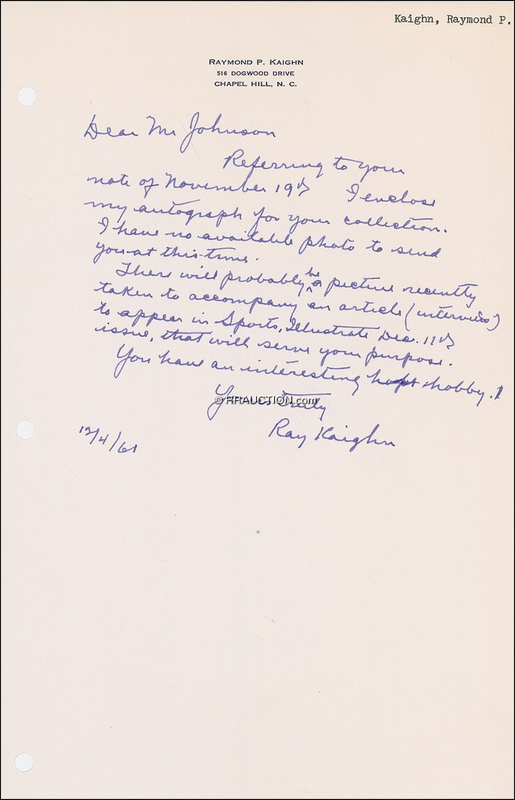 Kaighn, Raymond P.
RAYMOND P. KAIGHN
516 DOGWOOD DRIVE
CHAPEL HILL, N. C.
Dear Mr Johnson
Referring to your
note of November 19th I enclose
my autograph for your collection.
I have no available photo to send
you at this time.
There will probably be a picture recently
taken to accompany an article (interview)
to appear in Sports, Illustrate Dec. 11th
issue, that will serve your purpose.
You have an interesting hobby.
Yours truly
© RRAUCTION.com
Ray Kaighn
12/4/61